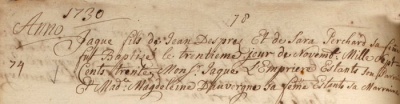 Anno 1730
78
Jaque fils de Jean Despres Et de Sara Perchard sa feme
fut Baptizé le trentieme jour de Novemb. Mille Sept
74 Cents trente, Mons. Jaque L'Empriere Estants son parain
Et Mad. Magdeleine Dauvergne sa feme Estants sa Marraine